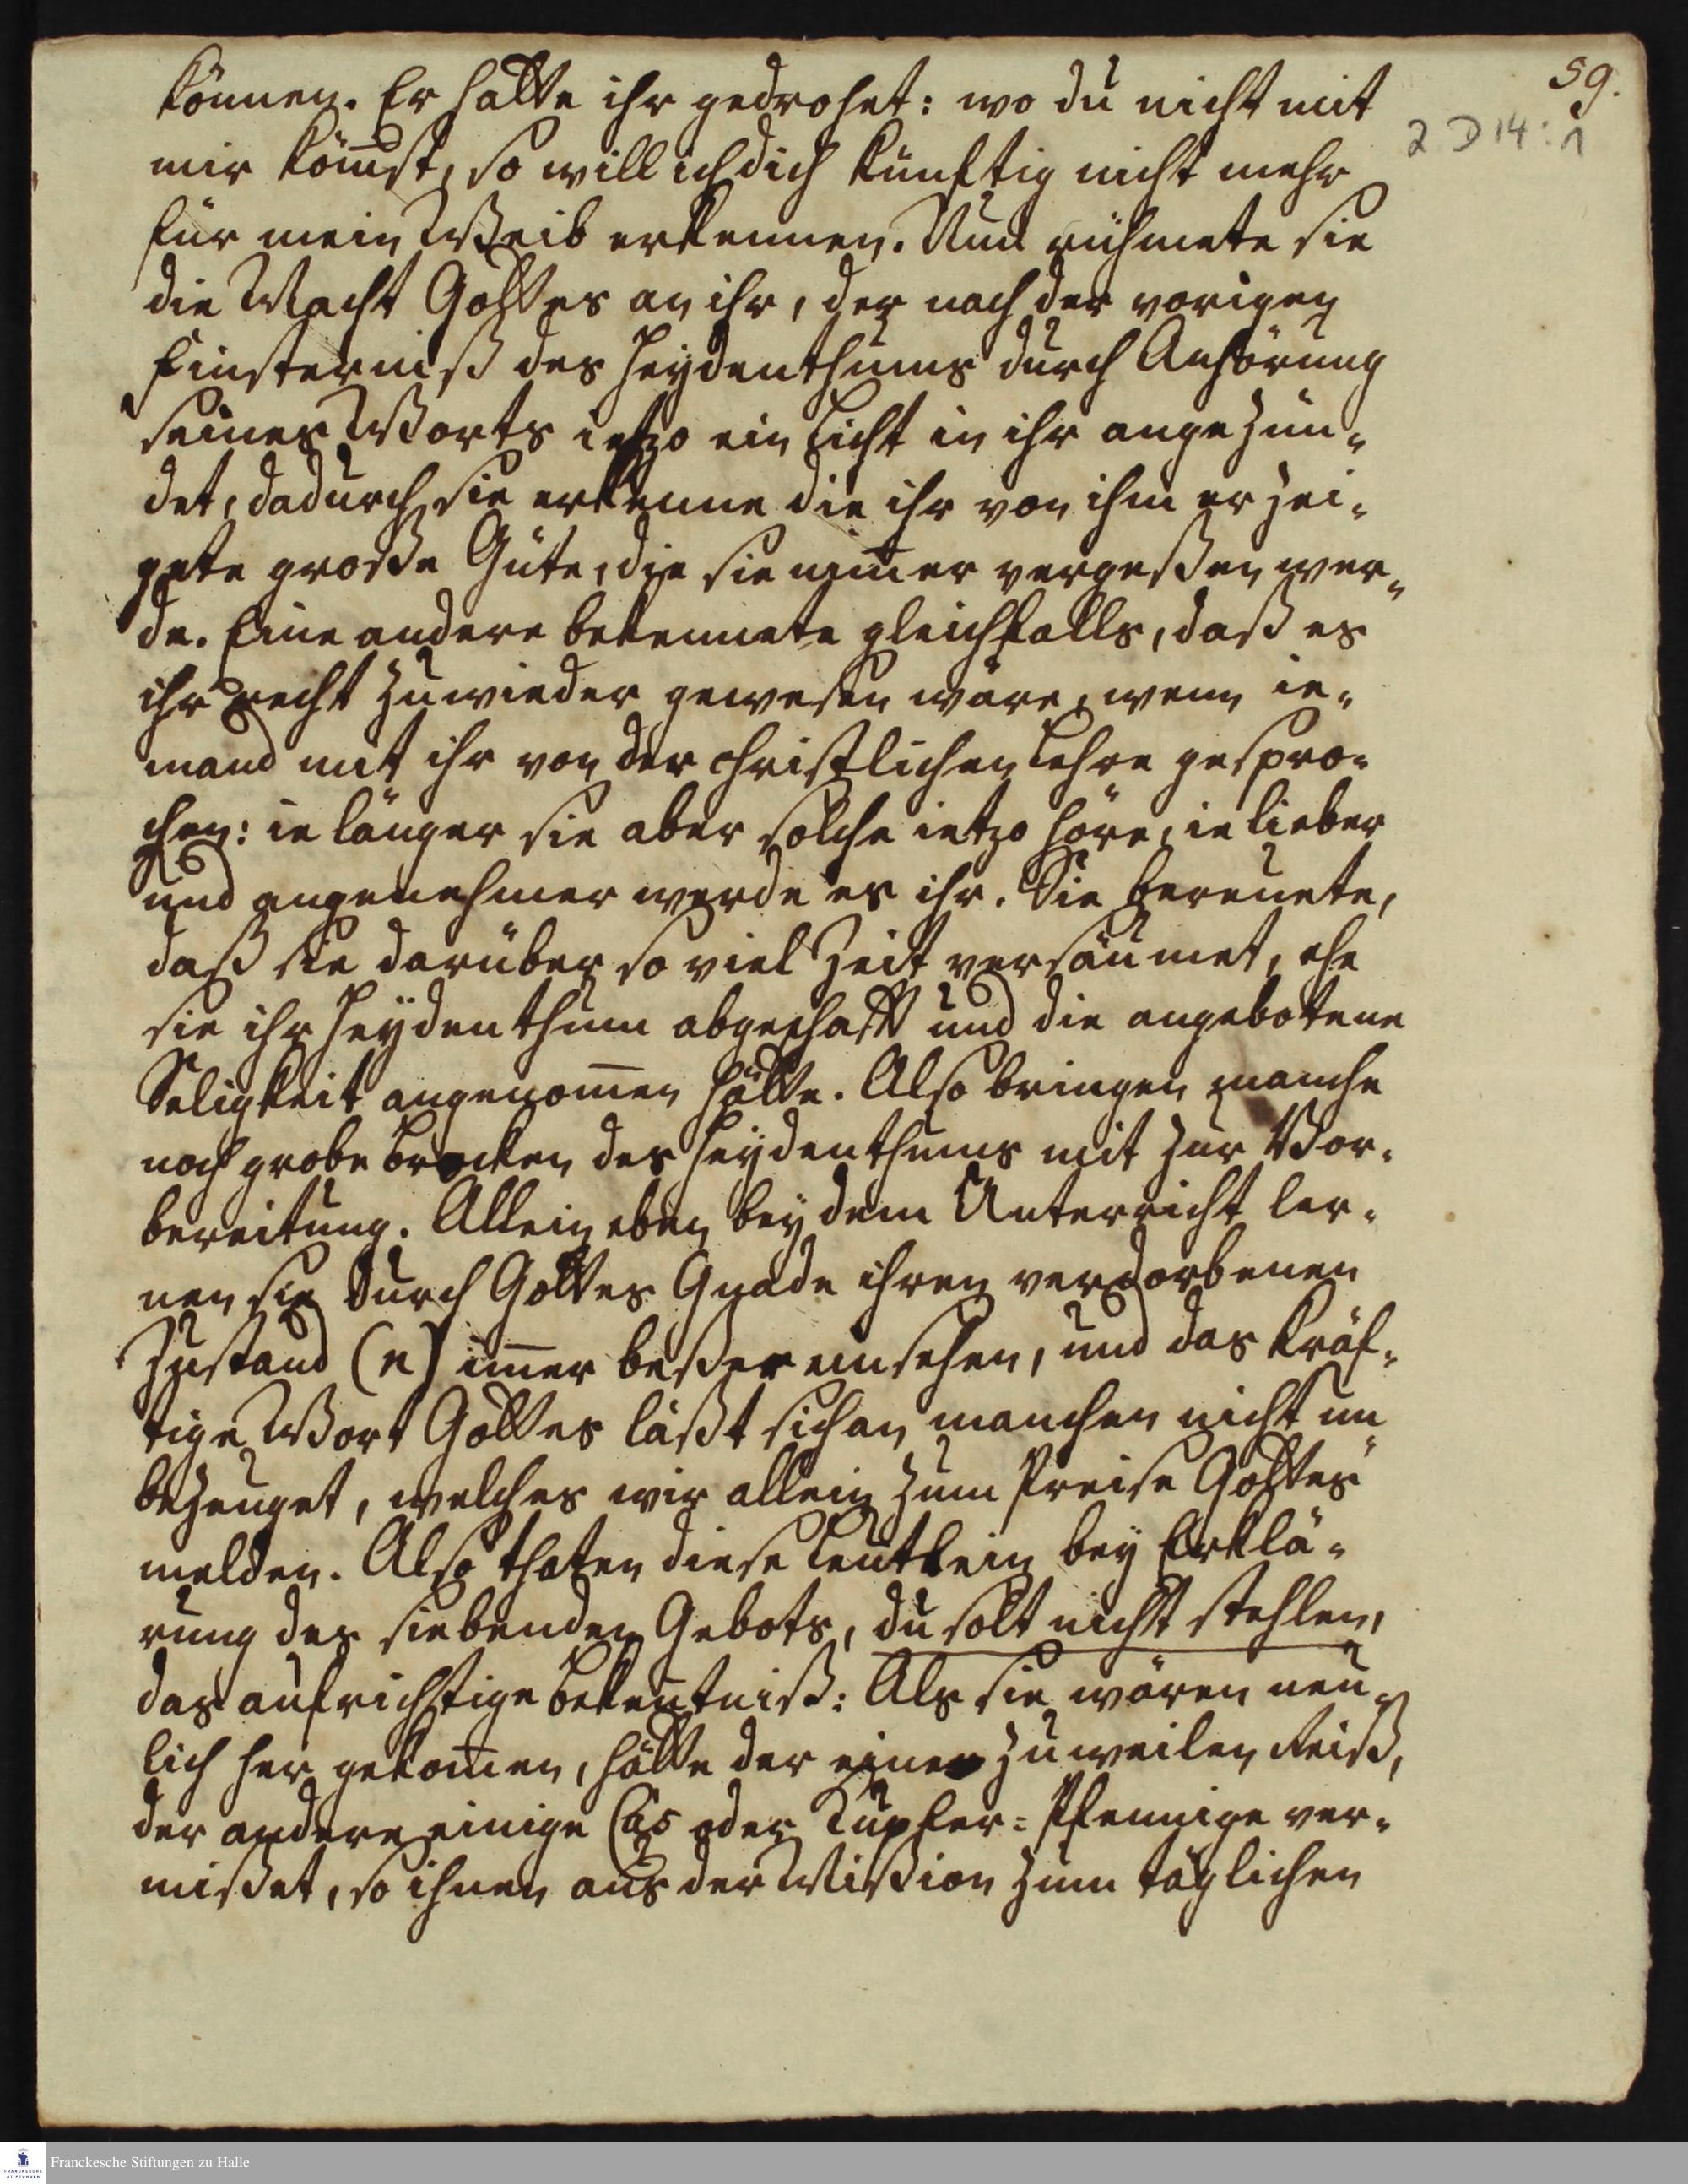 59.
2 D 14 : 1
können. Er hatte ihr gedrohet: wo du nicht mit
mir kom̄st, so will ich dich künftig nicht mehr
für mein Weib erkennen. Nun rühmete sie
die Macht Gottes an ihr, der nach der vorigen
Finsterniß des Heydenthums durch Anhörung
seines Worts ietzo ein Licht in ihr angezün-
det, dadurch sie erkenne die ihr von ihm erzei-
gete große Güte, die sie nim̄er vergeßen wer-
de. Eine andere bekennete gleichfalls, daß es
ihr recht zuwieder gewesen wäre, wenn ie-
mand mit ihr von der christlichen Lehre gespro-
chen: ie länger sie aber solche ietzo höre, ie lieber
und angenehmer werde es ihr. Sie bereuete,
daß sie darüber so viel Zeit versäumet, ehe
sie ihr Heydenthum abgeschafft und die angebotene
Seligkeit angenom̄en hätte. Also bringen manche
noch grobe Brocken des Heydenthums mit zur Vor-
bereitung. Allein eben bey dem Unterricht ler-
nen sie durch Gottes Gnade ihren verdorbenen
Zustand (n) im̄er beßer einsehen, und das kräf-
tige Wort Gottes läßt sich an manchen nicht un-
bezeuget, welches wir allein zum Preise Gottes
melden. Also thaten diese Leutlein bey Erklä-
rung des siebenden Gebots, du solt nicht stehlen,
das aufrichtige Bekentniß: Als sie wären neu-
lich her gekom̄en, hätte der eine zuweilen Reiß,
der andere einige Cas oder Kupfer-Pfennige ver-
mißet, so ihnen aus der Mißion zum täglichen
Franckesche Stiftungen zu Halle
FRANCKESCHE
STIFTUNGEN